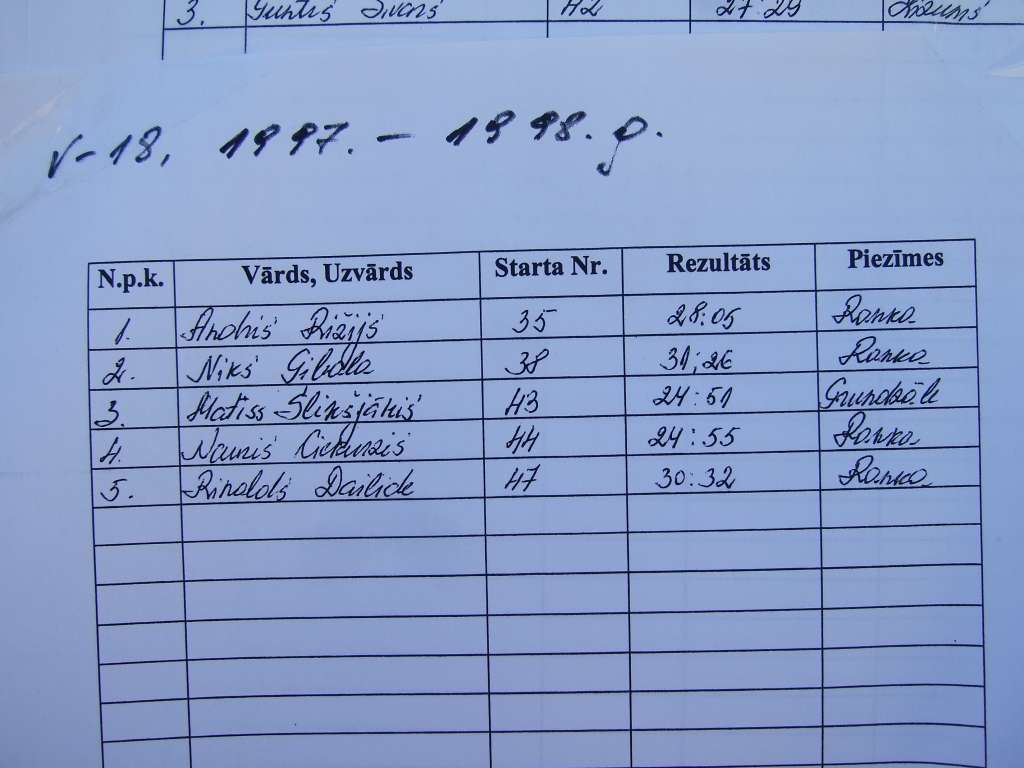 3. Guntis Sivars 42 27:29
V-18, 1997. - 1998. g.
N.p.k. Vārds, Uzvārds Starta Nr. Rezultāts Piezīmes
1. Andris Rižijs 35 28:05 Ranka
2. Niks Gibala 38 31;26 Ranka
3. Matiss Slinšjānis 43 24:51 Grundzāle
4. Nauris Ciekurzis 44 24:55 Ranka
5. Rinalds Dailide 47 30:32 Ranka